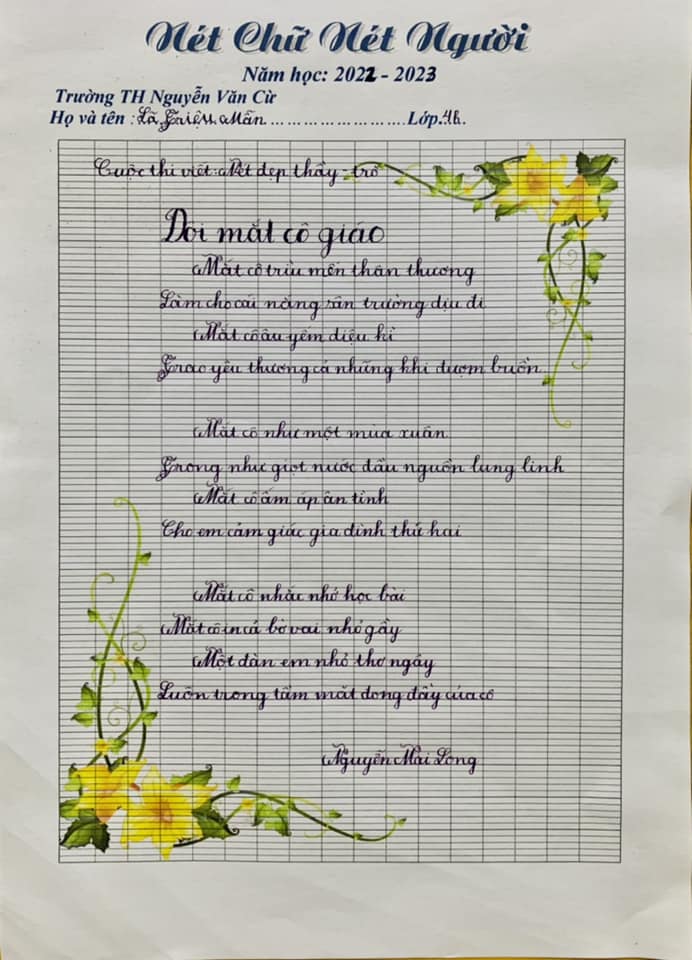 Nét Chữ Nét Người
Năm học: 2022 - 2023
Trường TH Nguyễn Văn Cừ
Họ và tên : Lã Triệu Mẫn ........................ Lớp. 4b.
Cuộc thi viết: Nét đẹp thầy - trò
Đôi mắt cô giáo
Mắt cô trìu mến thân thương
Làm cho cái nắng sân trường dịu đi
Mắt cô âu yếm diệu kì
Trao yêu thương cả những khi đượm buồn
Mắt cô như một mùa xuân
Trong như giọt nước đầu nguồn lung linh
Mắt cô ấm áp ân tình
Cho em cảm giác gia đình thứ hai
Mắt cô nhắc nhớ học bài
Mắt cô in cả bờ vai nhỏ gầy
Một đàn em nhỏ thơ ngây
Luôn trong tầm mắt dong đầy của cô
Nguyễn Mai Long